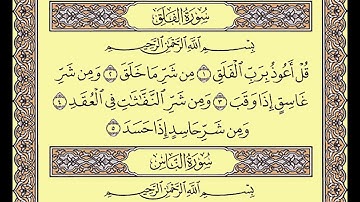 سُورَةُ الْفَلَقِ
بِسْمِ اللَّهِ الرَّحْمَٰنِ الرَّحِيمِ
قُلْ أَعُوذُ بِرَبِّ الْفَلَقِ ١ مِن شَرِّ مَا خَلَقَ ٢ وَمِن شَرِّ
غَاسِقٍ إِذَا وَقَبَ ٣ وَمِن شَرِّ النَّفَّاثَاتِ فِي الْعُقَدِ ٤
وَمِن شَرِّ حَاسِدٍ إِذَا حَسَدَ ٥
سُورَةُ النَّاسِ
بِسْمِ اللَّهِ الرَّحْمَٰنِ الرَّحِيمِ